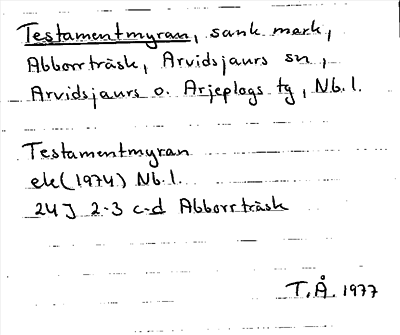 Testamentmyran, sank mark,
Abborrträsk, Arvidsjaurs sn,
Arvidsjaurs o. Arjeplogs tg, Nb.l.
Testamentmyran
ek(1974) Nb.l.
24J 2-3 c-d Abborrträsk
T.Å. 1977